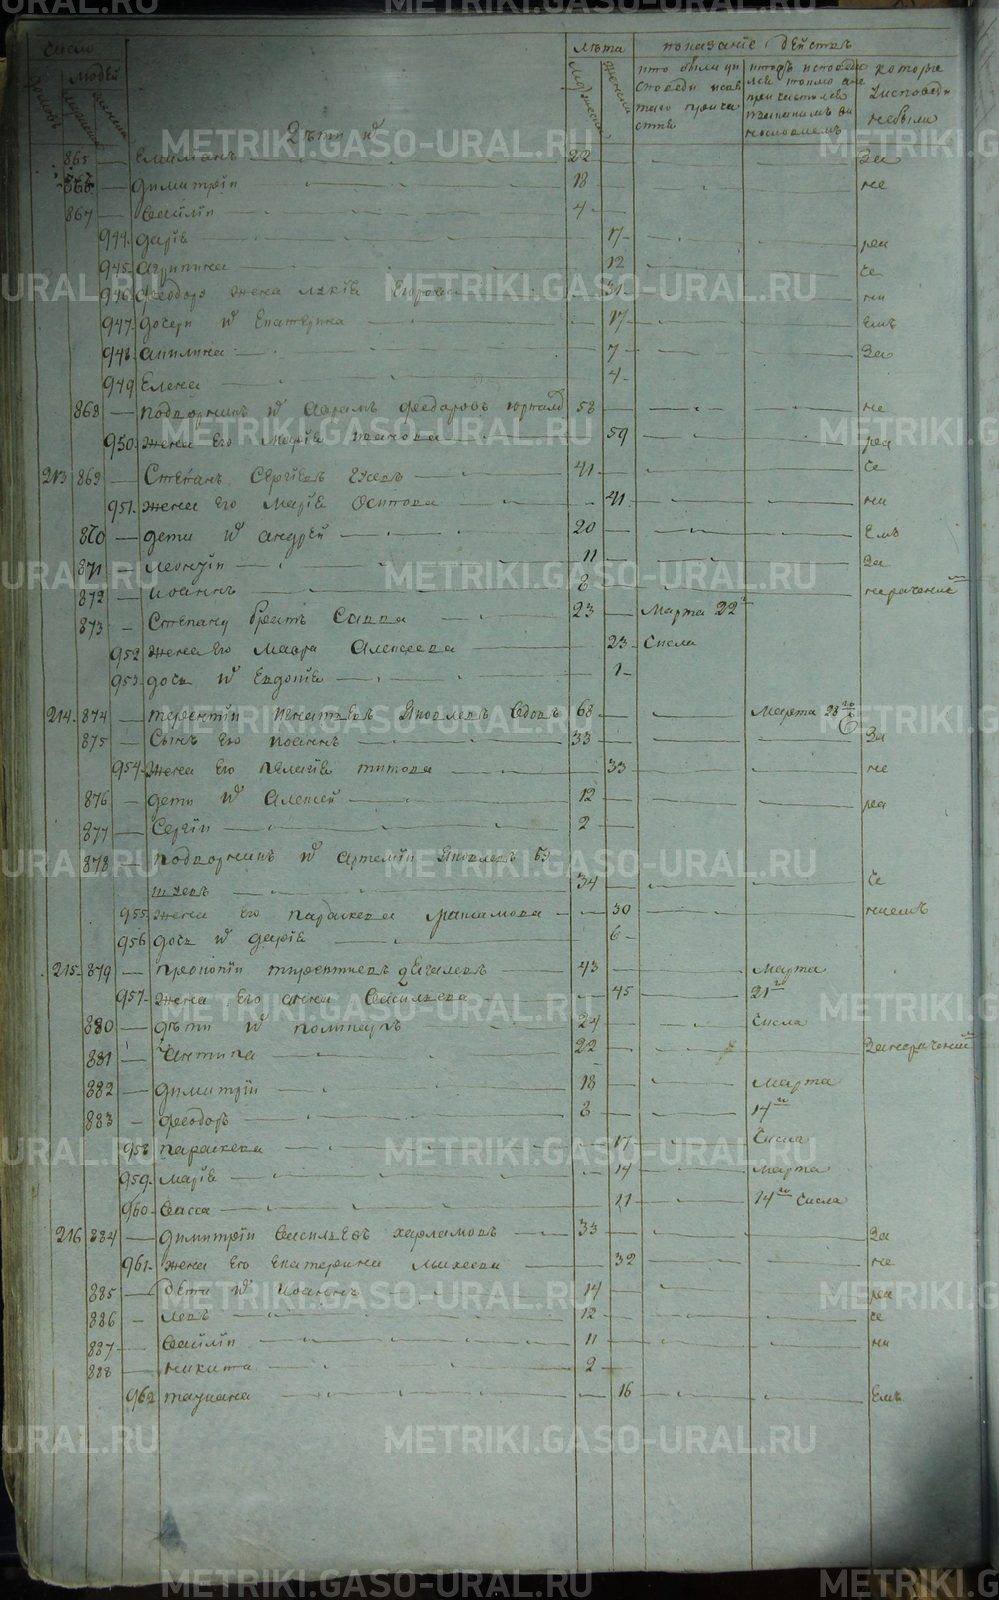 число лѣта показанїе дѣйства
домовъ людей мужеска женска мужеска женска кто были у исповеди и свтаго причастия которые исповеда лись токмо а не причастились которые у исповеди не были
Дѣти их
865 — Емилианъ 22 За
866 — Димитрїи 18 не
867 — Василїи 4
944 Дарїя 17 ра
945 Агрипина 12 че
946 Феодора жена Лукїя Егорова 31 ни
947 дочери их Екатерина 17 емъ
948 Акилина 7 За
949 Елена 4
868 — подворникъ их Аврамъ Феодоровъ 58 не
950 жена Его Марїя 59 ра
213 869 — Стефанъ Сергїевъ Гусевъ 41 че
951 жена его Марїя Осипова 41 ни
870 — дети их Андрей 20 емъ
871 Леонтїи 11 За
872 — Иоаннъ 8 нерачениемъ
873 — Степану братъ Савва 23 — Марта 22
952 жена Его Мавра Алексеева 23 числа
953 дочь их Евдокїя 1
214 874 — Терентїи Игнатьевъ 68 Марта 28
875 — Сынъ Его Иоаннъ 33 За
954 жена Его Пелагїя Титова 33 не
876 — дети их Алексей 12 ра
877 — Сергїи 2
878 — подворникъ их Артемїи Яковлевъ
34 че
955 жена Его Параскева 30 ниемъ
956 дочь их Дарїя 6
215 879 — Прокопїи Тирентиевъ 43 Марта
957 жена Его Анна Васильева 45 21го
880 — дѣти их Поликарпъ 24 числа
881 — Антипа 22 За нерачениемъ
882 — Димитрїи 18 Марта
883 — Феодоръ 8 14го
958 Параскева 17 числа
959 Марїя 14 Марта
960 Васса 11 14го числа
216 884 — Димитрїи Васильевъ Харламовъ 33 За
961 жена Его Екатерина Михеева 32 не
885 — дѣти их Иоаннъ 14 ра
886 — Левъ 12 че
887 — Василїи 11 ни
888 — Никита 2
962 Татиана 16 емъ
METRIKI.GASO-URAL.RU